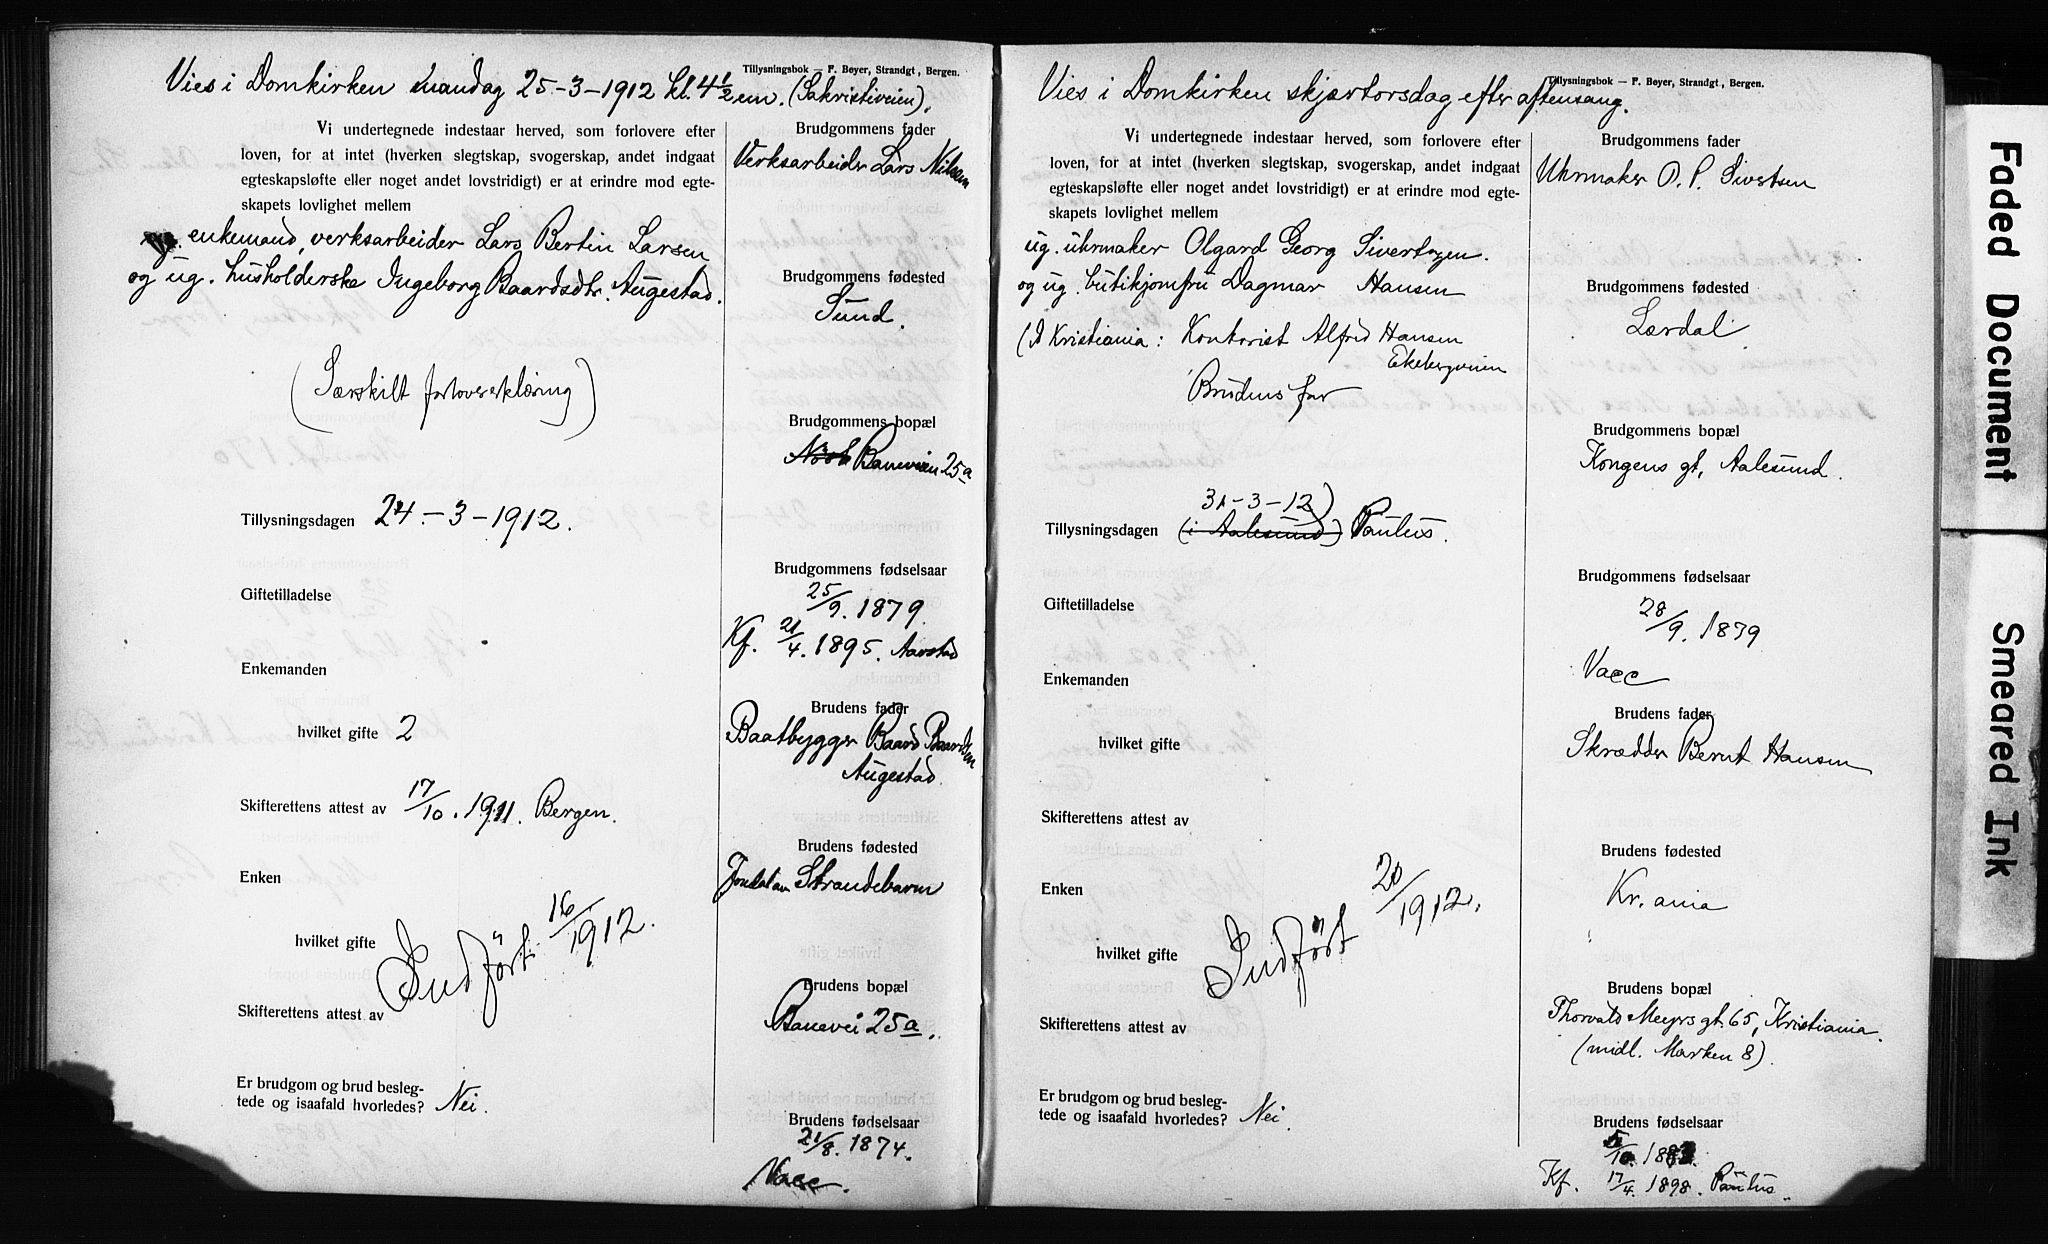 Tillysningsbok — F. Beyer, Strandgt., Bergen.
Vies i Domkirken mandag 25-3-1912 kl. 4½ em. (Sakristiveien).
Vi undertegnede indestaar herved, som forlovere efter
loven, for at intet (hverken slegtskap, svogerskap, andet indgaat
egteskapsløfte eller noget andet lovstridigt) er at erindre mod egte-
skapets lovlighet mellem
enkemand, verksarbeider Lars Bertin Larsen
og ug. husholderske Ingeborg Baardsdtr. Augestad.
(Særskilt forlovererklæring)
Tillysningsdagen 24.-3-1912.
Giftetilladelse
Enkemanden
hvilket gifte 2
Skifterettens attest av 17/10. 1911. Bergen.
Enken
hvilket gifte
Indført 16/1912.
Skifterettens attest av
Er brudgom og brud besleg-
tede og isaafald hvorledes? Nei.
Brudgommens fader
Verksarbeider Lars Nilsen
Brudgommens fødested
Sund.
Brudgommens bopæl
Banevien 25a
Brudgommens fødselsaar
25/9. 1879.
Kf. 21/4. 1895. Aarstad
Brudens fader
Baatbygger Baard Baardsen
Augestad.
Brudens fødested
Strandebarm
Brudens bopæl
Banevei 25a.
Brudens fødselsaar
21/8. 1874.
Vacc.
Tillysningsbok — F. Beyer, Strandgt., Bergen.
Vies i Domkirken skjærtorsdag efter aftensang.
Vi undertegnede indestaar herved, som forlovere efter
loven, for at intet (hverken slegtskap, svogerskap, andet indgaat
egteskapsløfte eller noget andet lovstridigt) er at erindre mod egte-
skapets lovlighet mellem
ug. uhrmaker Olgard Georg Sivertsen.
og ug. butikjomfru Dagmar Hansen
(I Kristiania: Kontorist Alfred Hansen
Ekebergveien
Brudens far
31-3-12)
Tillysningsdagen (i Aalesund) Paulus.
Giftetilladelse
Enkemanden
hvilket gifte
Skifterettens attest av
Enken
hvilket gifte
Indført 20/1912.
Skifterettens attest av
Er brudgom og brud besleg-
tede og isaafald hvorledes? Nei.
Brudgommens fader
Uhrmaker O. P. Sivertsen
Brudgommens fødested
Lærdal
Brudgommens bopæl
Kongens gt, Aalesund.
Brudgommens fødselsaar
28/9. 1879
Vacc
Brudens fader
Skrædder Bernt Hansen
Brudens fødested
Kr.ania
Brudens bopæl
Thorvald Meyrs gt. 65, Kristiania.
(midl. Marken 8).
Brudens fødselsaar
Kf. 17/4. 1898. Paulus.
Faded Document
Smeared Ink